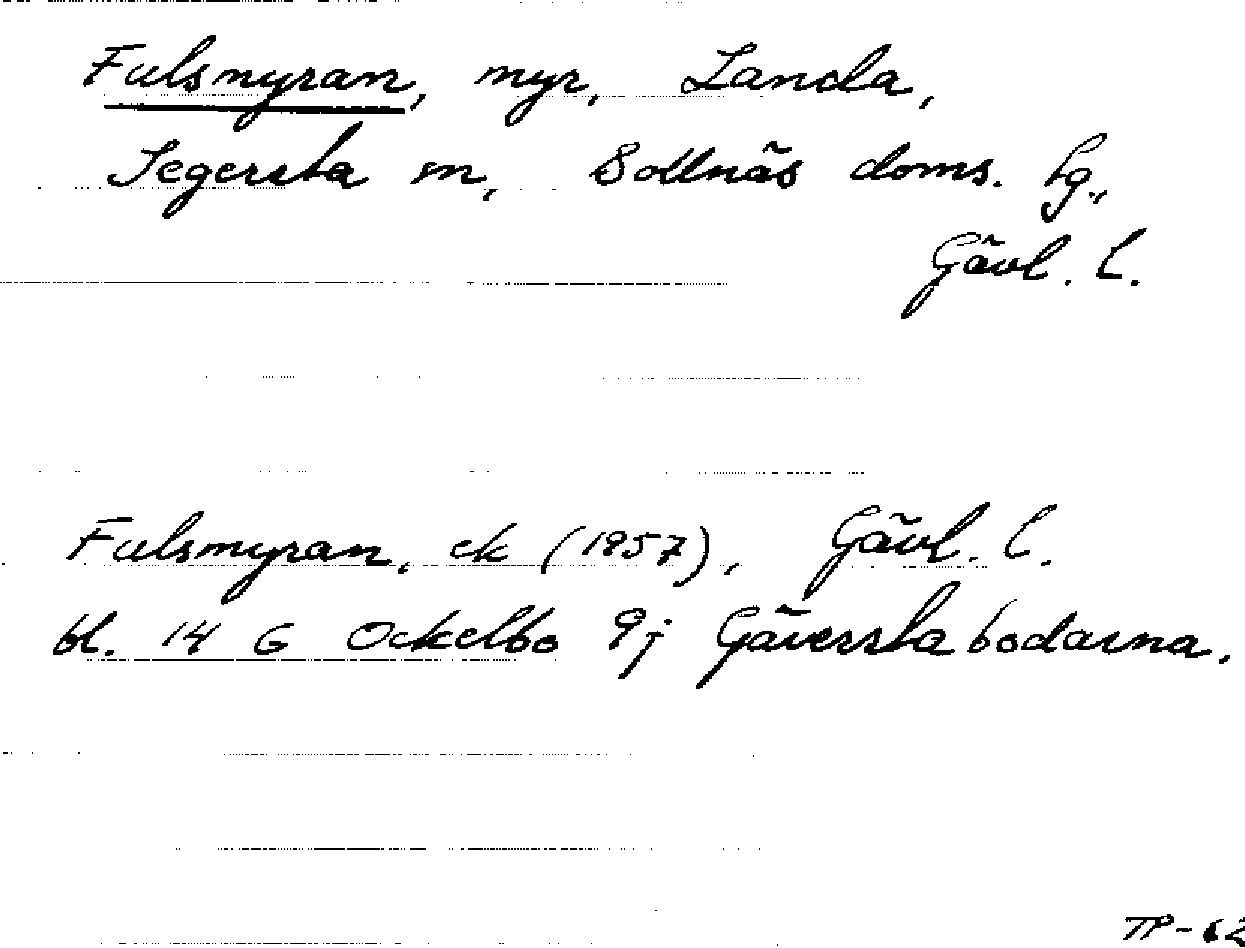 Fulsmyran, myr, Landa,
Segersta sn, Bollnäs doms. lg.,
Gävl. l.
Fulsmyran, ek (1957), Gävl. l.
bl. 14 G Ockelbo 9j Gäverstabodarna.
TP-62